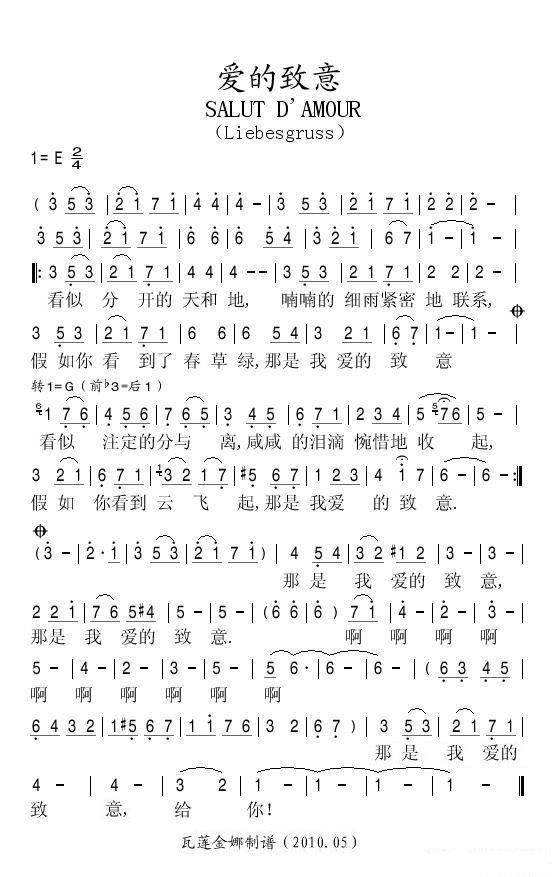 爱的致意
SALUT D'AMOUR
（Liebesgruss）
1= E 2/4
( 3 5 3 | 2 1 7 1 | 4 4 | 4 - | 3 5 3 | 2 1 7 1 | 2 2 | 2 - |
3 5 3 | 2 1 7 1 | 6 6 | 6 5 4 | 3 2 1 | 6 7 | 1 - | 1 - )
|: 3 5 3 | 2 1 7 1 | 4 4 | 4 - - | 3 5 3 | 2 1 7 1 | 2 2 | 2 - |
看似 分 开的 天和 地, 喃喃的 细雨紧密 地 联系,
3 5 3 | 2 1 7 1 | 6 6 | 6 5 4 | 3 2 1 | 6 7 | 1 - | 1 - |
假 如你 看 到了 春 草 绿,那是 我 爱的 致 意
转1=G（前♭3=后1）
1 7 6 | 4 5 6 | 7 6 5 | 3 4 5 | 6 7 1 | 2 3 4 | 5 7 6 | 5 - |
看似 注定的分与 离,咸咸 的泪滴 惋惜地 收 起,
3 2 1 | 6 7 1 | 3 2 1 7 | #5 6 7 | 1 2 3 | 4 1 7 | 6 - | 6 - :|
假 如 你看到 云 飞 起,那是 我爱 的 致意.
( 3 - | 2· 1 | 3 5 3 | 2 1 7 1 ) | 4 5 4 | 3 2 #1 2 | 3 - | 3 - |
那 是 我 爱的 致 意,
2 2 1 | 7 6 5 #4 | 5 - | 5 - | ( 6 6 | 6 ) 7 1 | 4 - | 2 - | 3 - |
那是 我 爱的 致 意. 啊 啊 啊 啊
5 - | 4 - | 2 - | 3 - | 5 - | 5 6· | 6 - | 6 - | ( 6 3 4 5 |
啊 啊 啊 啊 啊 啊
6 4 3 2 | 1 #5 6 7 | 1 1 7 6 | 3 2 | 6 7 ) | 3 5 3 | 2 1 7 1 |
那 是 我 爱的
4 - | 4 - | 3 2 | 1 - | 1 - | 1 - | 1 - ||
致 意, 给 你!
瓦莲金娜制谱（2010.05）